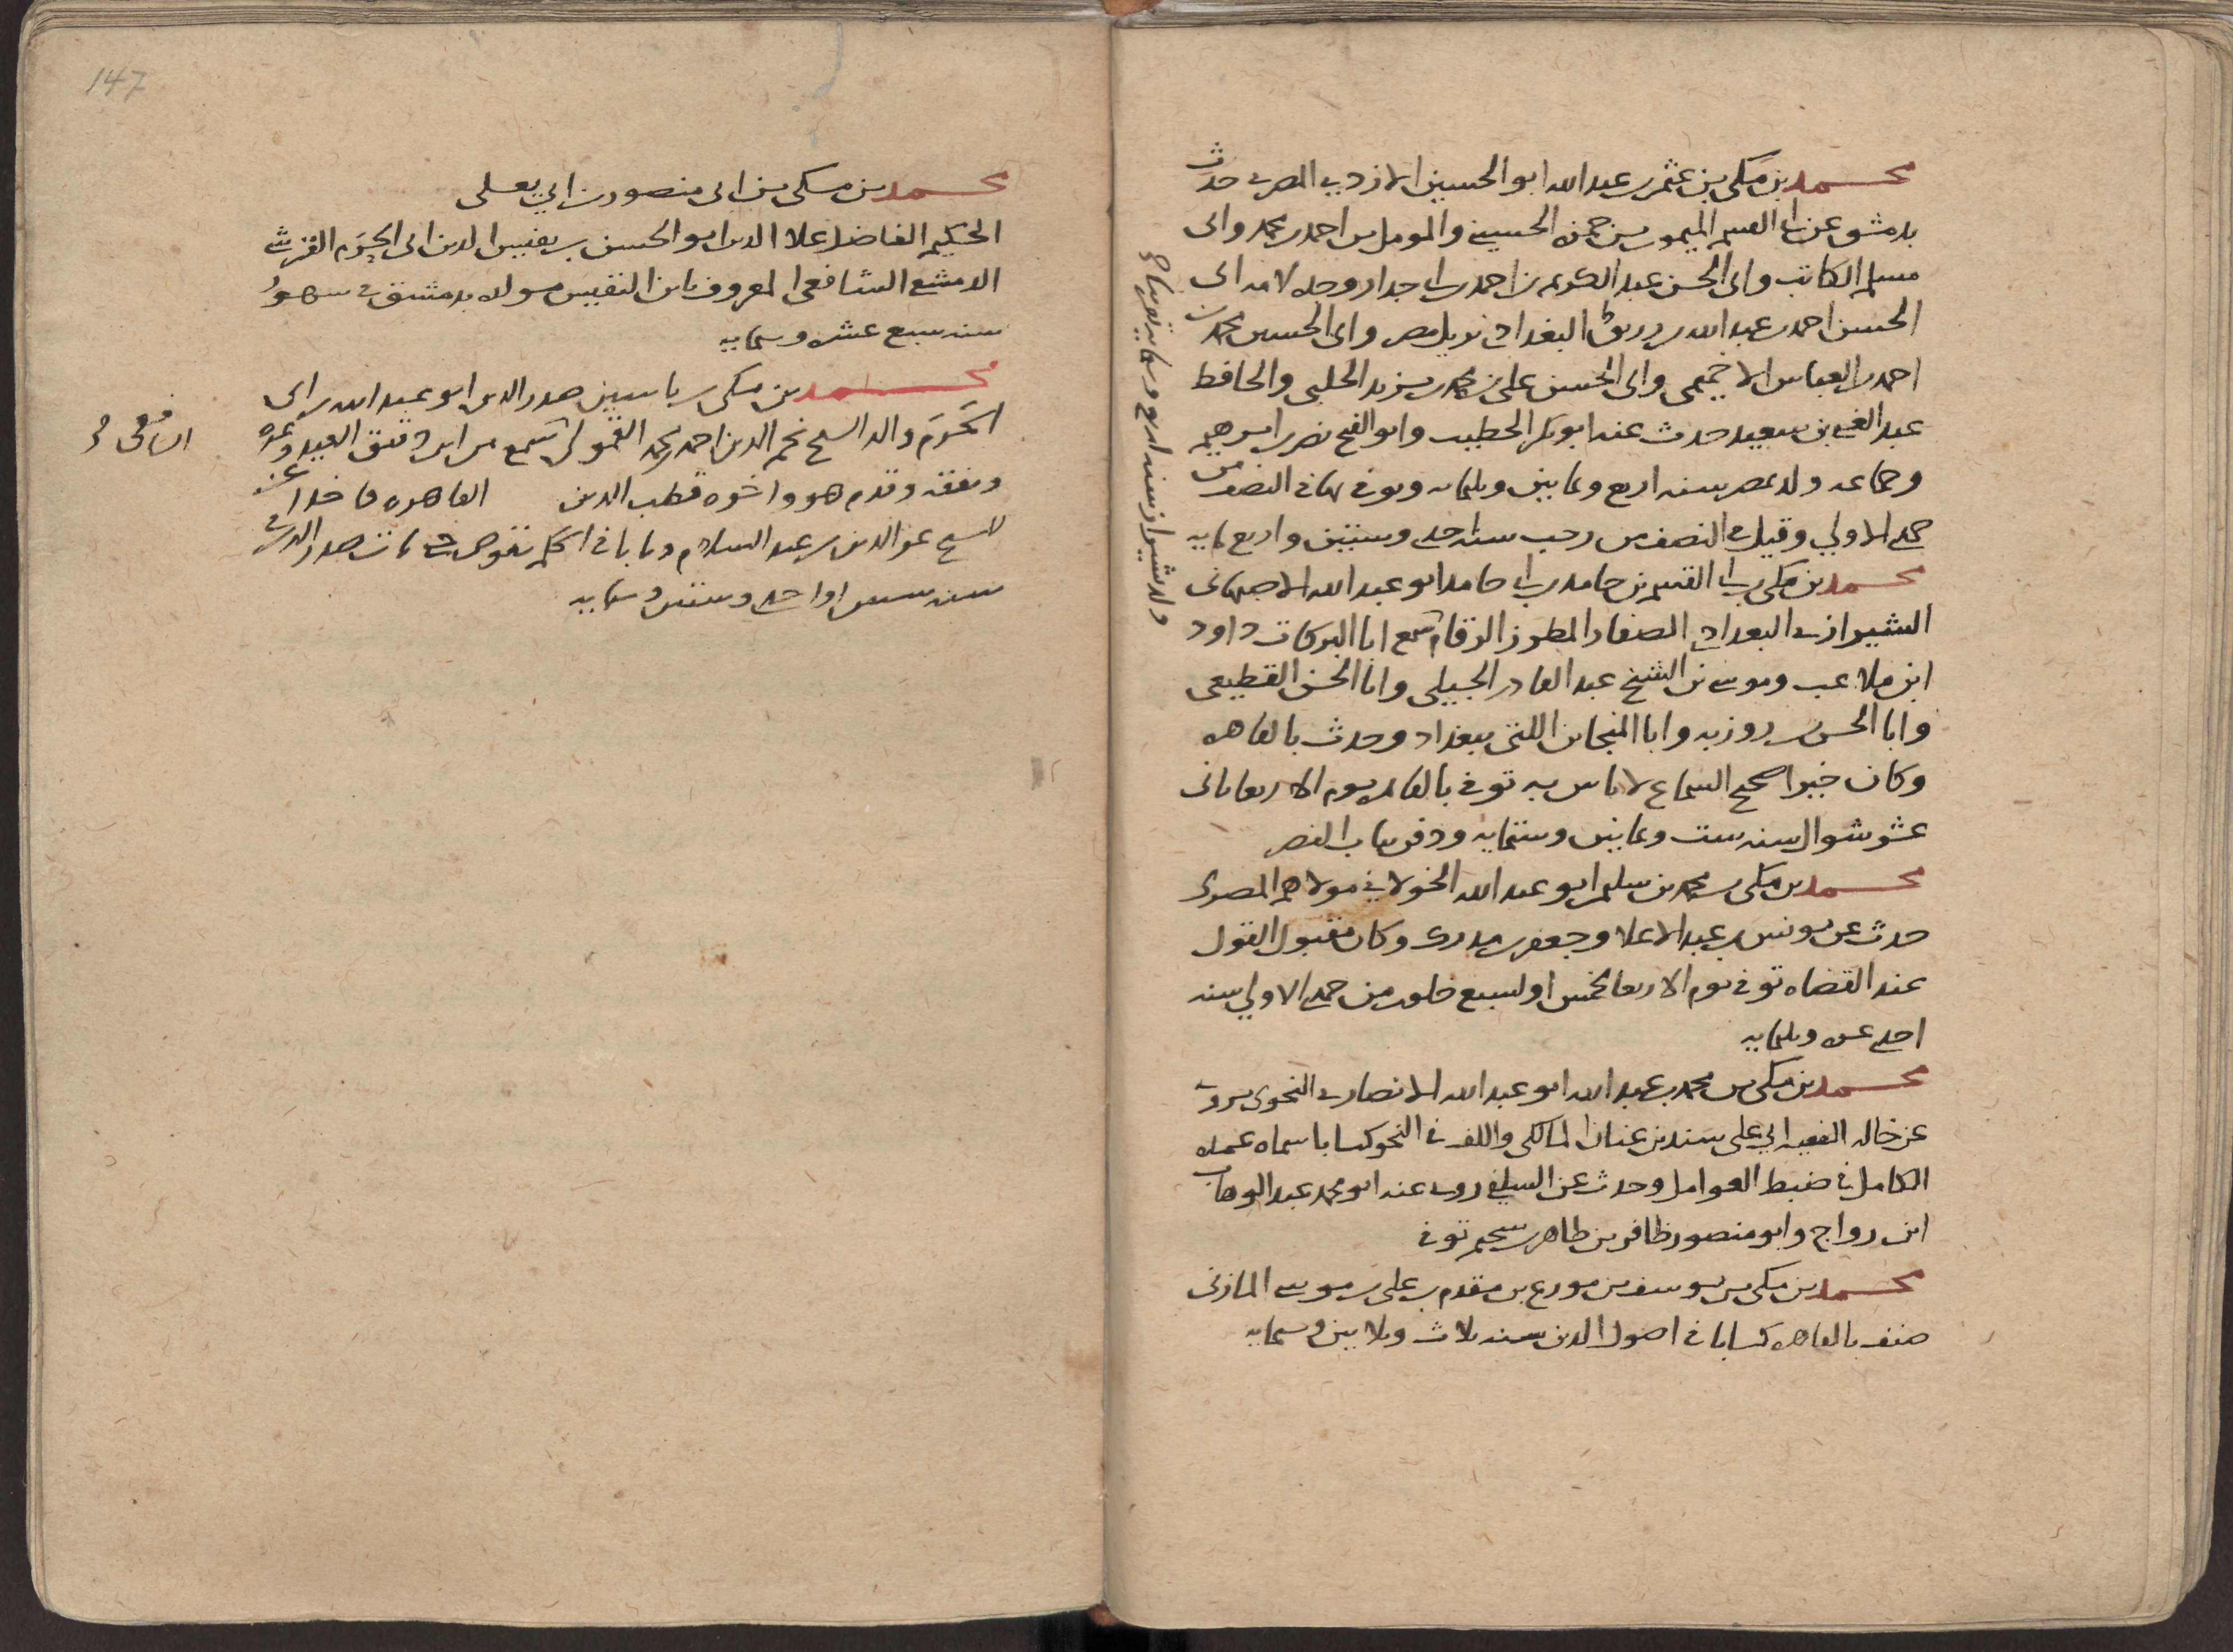 محمد بن مكي بن عثمن بن عبد الله ابو الحسين الازدي المصري حدث
بدمشق عن ابي القسم الميمون بن حمزه الحسيني والمومل بن احمد بن محمد وابي
مسلم الكاتب وابي الحسن عبد الكريم بن احمد بن ابي جدار وجده لامه ابي
الحسن احمد بن عبد الله بن رزيق البغدادي نزيل مصر وابي الحسين محمد بن
احمد بن العباس الاخميمي وابي الحسن علي بن محمد بن يزيد الحلبي والحافظ
عبد الغني بن سعيد حدث عنه ابو بكر الخطيب وابو الفتح نصر بن ابرهيم
وجماعه ولد بمصر سنه اربع وثمانين وثلثمايه وتوفي بها في النصف من
جمدي الاولي وقيل في النصف من رجب سنة احدي وستين واربع مايه
محمد بن مكي بن ابي القسم بن حامد بن ابي حامد ابو عبد الله الاصبهاني
الشيرازي البغدادي الصفار المطرز الرقام سمع ابا البركات داود
ابن ملاعب وموسي بن الشيخ عبد القادر الجيلي وابا الحسن القطيعي
وابا الحسن بن روزبه وابا المنجا بن اللتي ببغداد وحدث بالقاهره
وكان خيرا صحيح السماع لا باس به توفي بالقاهره يوم الاربعا ثاني
عشر شوال سنه ست وثمانين وستمايه ودفن بباب النصر
ولد بشيراز سنه اربع وستمايه تقريبا
محمد بن مكي بن محمد بن سلم ابو عبد الله الخولاني مولاهم المصري
حدث عن يونس بن عبد الاعلا وجعفر بن وكان مقبول القول
عند القضاه توفي يوم الاربعا لخمس او لسبع خلون من جمدي الاولي سنه
احدي عشره وثلثمايه
محمد بن مكي بن محمد بن عبد الله ابو عبد الله الانصاري النحوي يروي
عن خاله الفقيه ابي علي سند بن عنان المالكي والف في النحو كتابا سماه عمده
الكامل في ضبط العوامل وحدث عن السلفي روي عنه ابو محمد عبد الوهاب
ابن رواج وابو منصور ظافر بن طاهر بن سحيم توفي
محمد بن مكي بن يوسف بن مورع بن مقدم بن علي بن موسي المازني
صنف بالقاهره كتابا في اصول الدين سنه ثلاث وثلاثين وستمايه
147
محمد بن مكي بن ابي منصور بن ابي يعلي
الحكيم الفاضل علا الدين ابو الحسن بن نفيس الدين ابي الحرم القرشي
الدمشقي الشافعي المعروف بابن النفيس مولده بدمشق في شهور
سنه سبع عشره وستمايه
محمد بن مكي بن ياسين صدر الدين ابو عبد الله بن ابي
الحرم والد الشيخ نجم الدين احمد بن محمد القمولي سمع من ابن دقيق العيد وغيره
الشافعي
وتفقه وقدم هو واخوه قطب الدين القاهره فاخدا عن
الشيخ عز الدين بن عبد السلام ونابا في الحكم بقوص مات صدر الدين في
سنه ستين او احدي وستين وستمايه